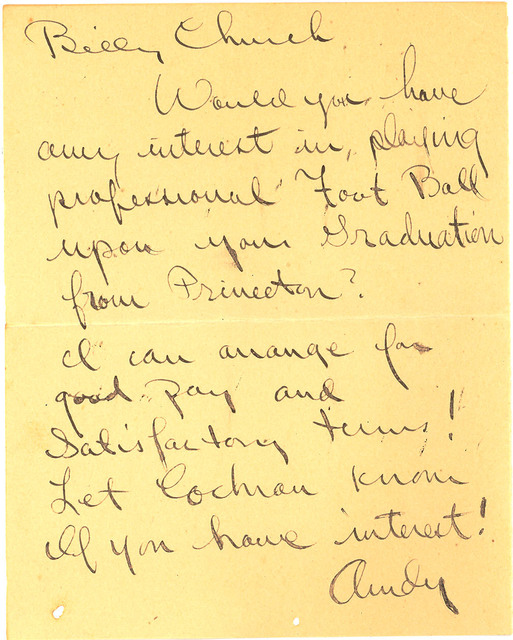 Billy Church
Would you have
any interest in, playing
professional Foot Ball
upon your Graduation
from Princeton?
I can arrange for
good pay and
Satisfactory terms!
Let Cochran know
If you have interest!
Andy